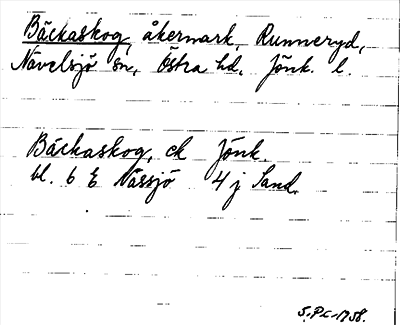 Bäckaskog, åkermark, Runneryd,
Nävelsjö sn, Östra hd, Jönk. l.
Bäckaskog, ek Jönk.
bl. 6 E Nässjö 4 j Sand.
S. PL-1958.